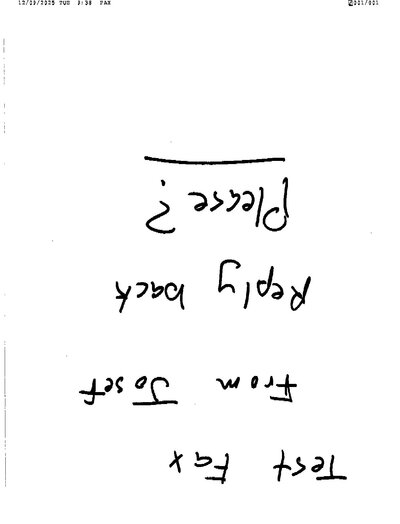 12/09/2025 TUE 9:38 FAX
001/001
Test Fax
From Josef
Reply back
Please?